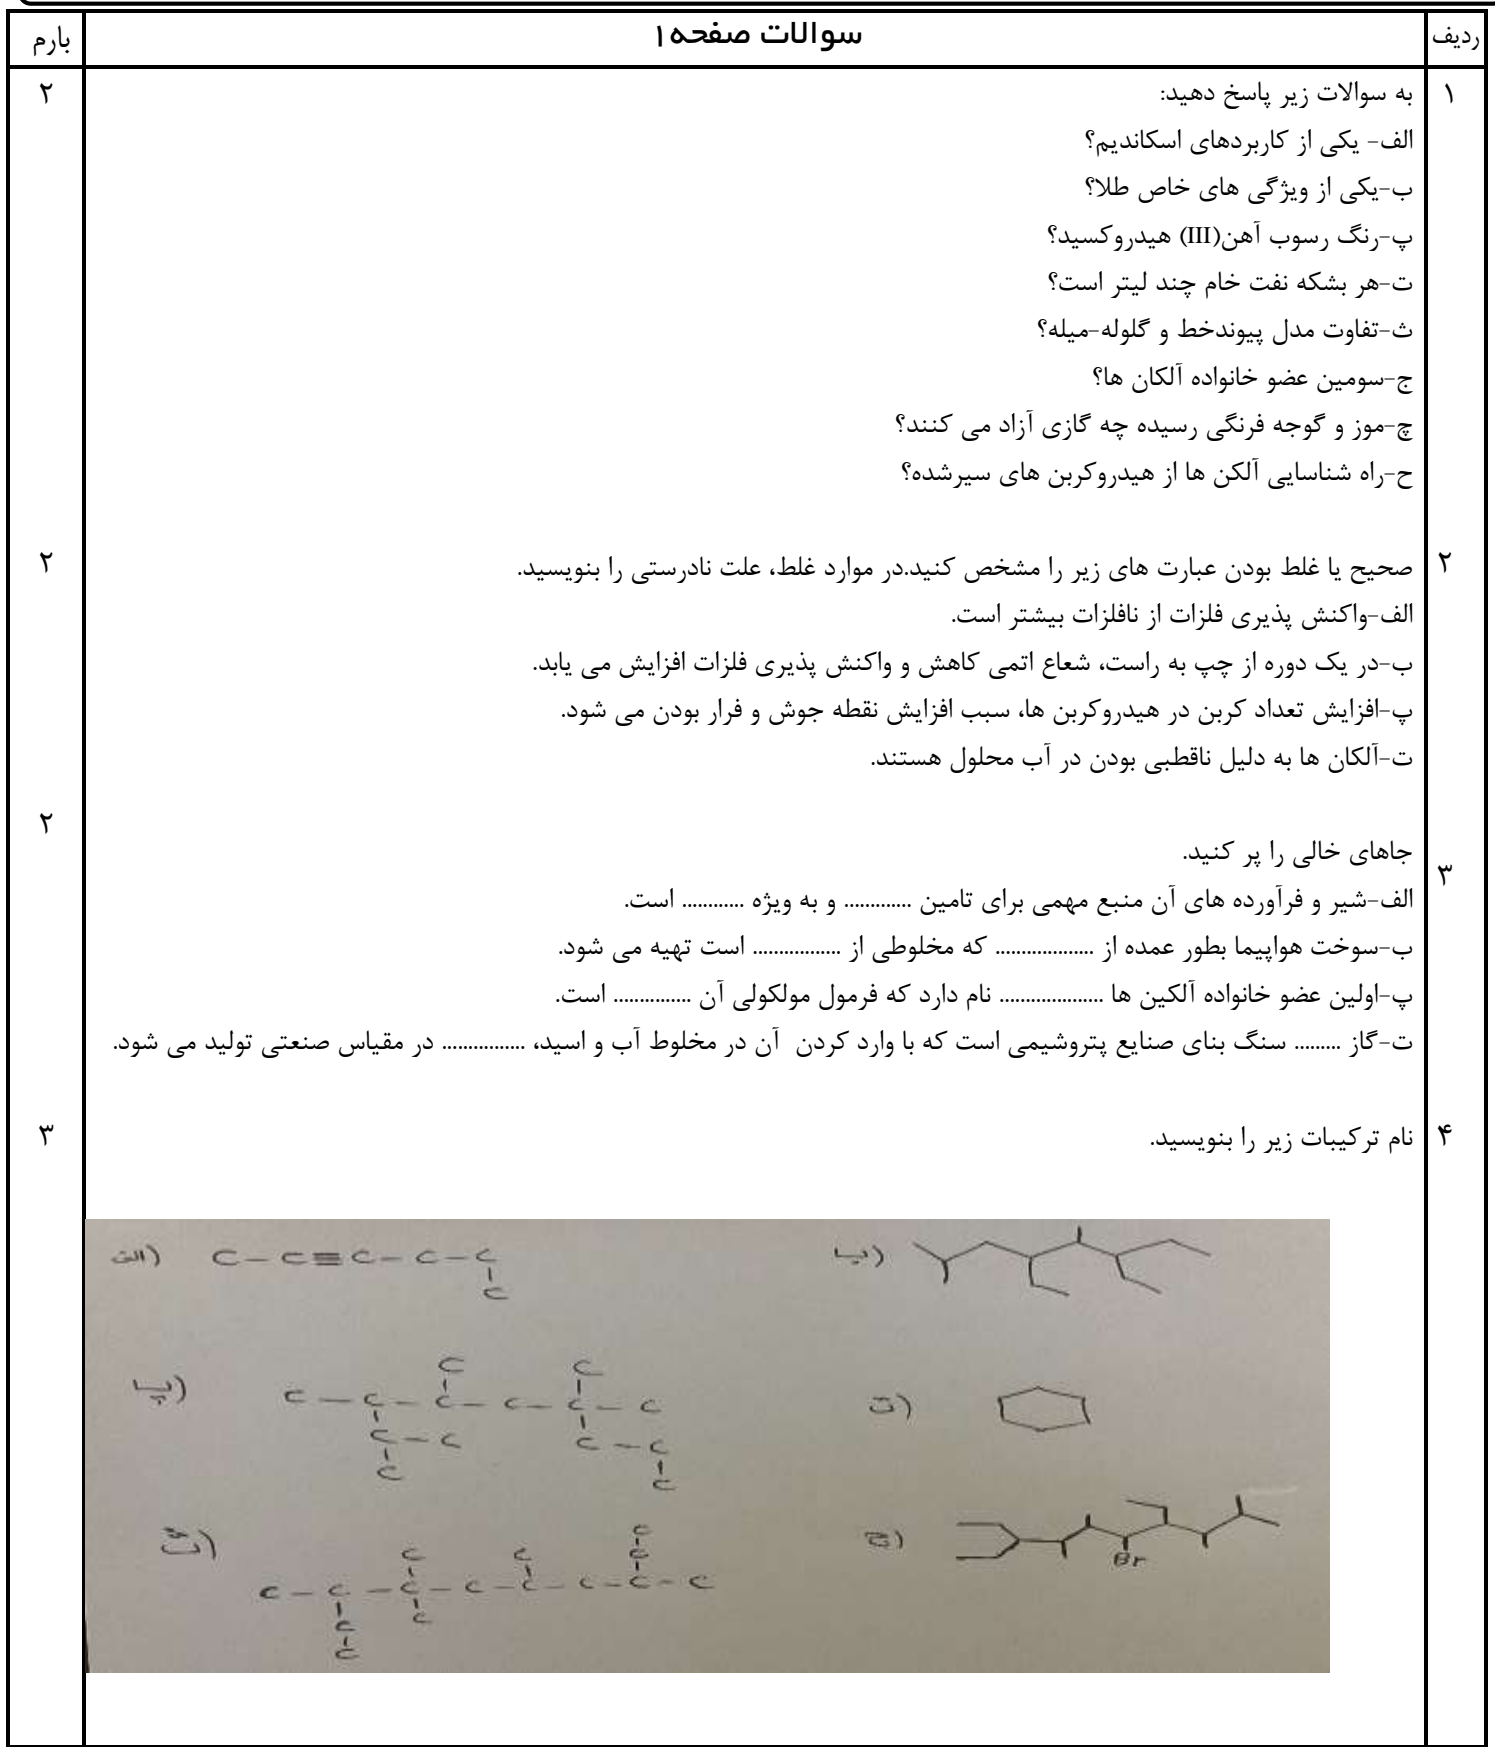 ردیف
سوالات صفحه۱
بارم
۱
به سوالات زیر پاسخ دهید:
۲
الف- یکی از کاربردهای اسکاندیم؟
ب-یکی از ویژگی های خاص طلا؟
پ-رنگ رسوب آهن(III) هیدروکسید؟
ت-هر بشکه نفت خام چند لیتر است؟
ث-تفاوت مدل پیوندخط و گلوله-میله؟
ج-سومین عضو خانواده آلکان ها؟
چ-موز و گوجه فرنگی رسیده چه گازی آزاد می کنند؟
ح-راه شناسایی آلکن ها از هیدروکربن های سیرشده؟
۲
صحیح یا غلط بودن عبارت های زیر را مشخص کنید.در موارد غلط، علت نادرستی را بنویسید.
۲
الف-واکنش پذیری فلزات از نافلزات بیشتر است.
ب-در یک دوره از چپ به راست، شعاع اتمی کاهش و واکنش پذیری فلزات افزایش می یابد.
پ-افزایش تعداد کربن در هیدروکربن ها، سبب افزایش نقطه جوش و فرار بودن می شود.
ت-آلکان ها به دلیل ناقطبی بودن در آب محلول هستند.
۲
جاهای خالی را پر کنید.
۳
الف-شیر و فرآورده های آن منبع مهمی برای تامین ............. و به ویژه ............ است.
ب-سوخت هواپیما بطور عمده از ................... که مخلوطی از ................. است تهیه می شود.
پ-اولین عضو خانواده آلکین ها .................... نام دارد که فرمول مولکولی آن ............... است.
ت-گاز ......... سنگ بنای صنایع پتروشیمی است که با وارد کردن آن در مخلوط آب و اسید، ................ در مقیاس صنعتی تولید می شود.
۴
نام ترکیبات زیر را بنویسید.
۳
الف) C - C ≡ C - C - C
C
ب)
پ)
C C
C - C - C - C - C - C
C - C C - C
C C
ت)
ث)
C
C C C
C - C - C - C - C - C - C - C
C C
C
ج)
Br